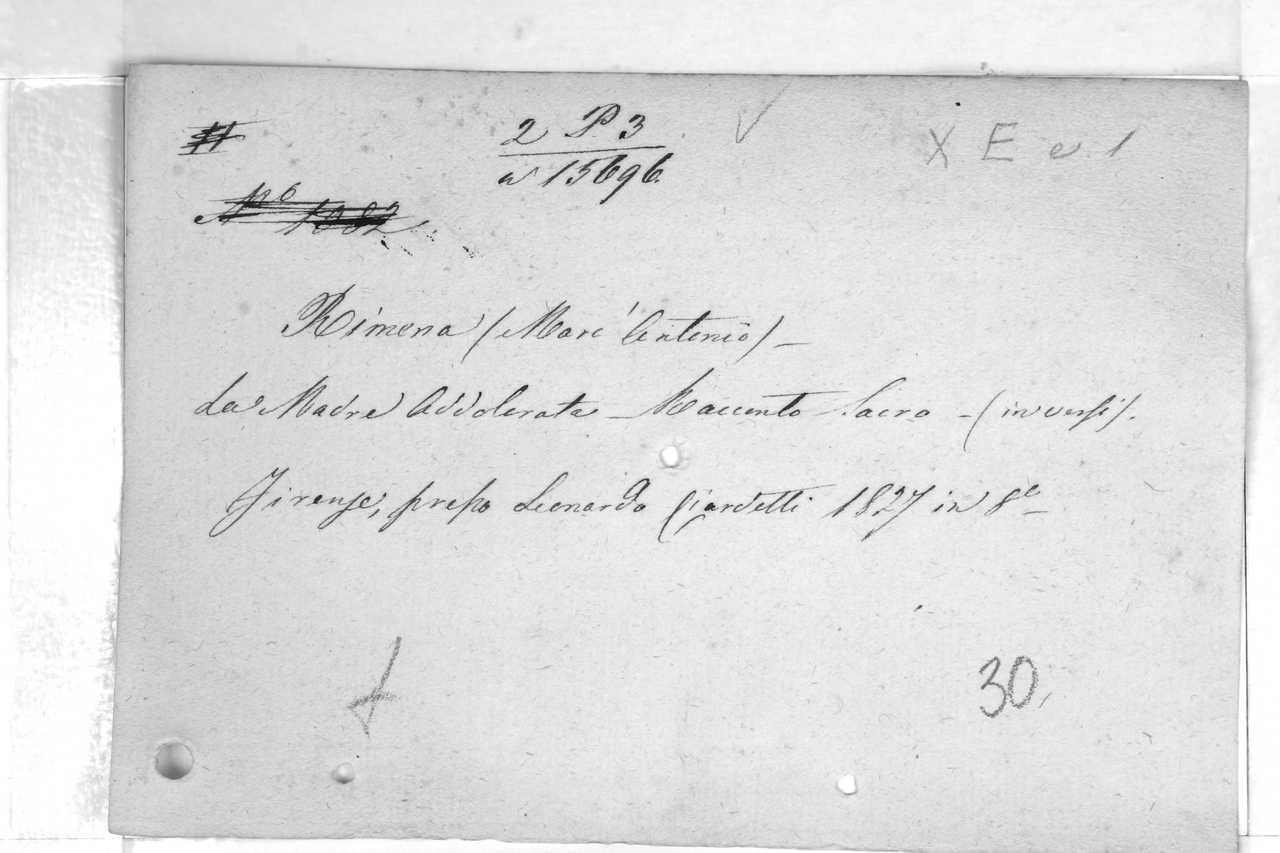 2 P 3
a 15696.
X E e. 1
Nº 1082
Rimena (Marc' Antonio) _
La Madre Addolorata _ Racconto Sacro - (in versi).
Firenze, presso Leonardo Ciardetti 1827 in 8º _
30